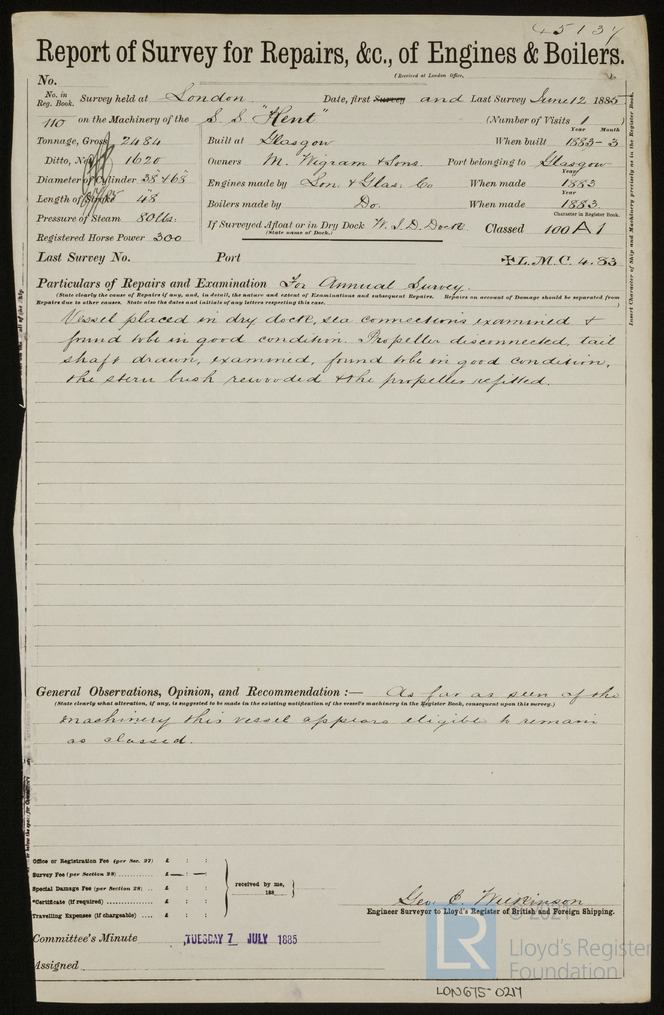 45137
Report of Survey for Repairs, &c., of Engines & Boilers.
(Received at London Office,
No.
No. in Reg. Book. Survey held at London Date, first Survey and Last Survey June 12 1885
110 on the Machinery of the S.S. "Kent" (Number of Visits 1 )
Year Month
Tonnage, Gross 2484 Built at Glasgow When built 1883-3
Ditto, Net 1620 Owners M. Wigram & Sons. Port belonging to Glasgow
Year
Diameter of Cylinder 38" & 68" Engines made by Lon. & Glas. Co When made 1883
Year
Length of Stroke 48" Boilers made by Do. When made 1883
Character in Register Book.
Pressure of Steam 80 lbs. If Surveyed Afloat or in Dry Dock W.I.D. Dock Classed 100 A 1
(State name of Dock.)
Registered Horse Power 300
Last Survey No. Port ✠L.M.C. 4.83
Particulars of Repairs and Examination For Annual Survey.
(State clearly the cause of Repairs if any, and, in detail, the nature and extent of Examinations and subsequent Repairs. Repairs on account of Damage should be separated from
Repairs due to other causes. State also the dates and initials of any letters respecting this case.)
Vessel placed in dry dock, sea connections examined &
found to be in good condition. Propeller disconnected, tail
shaft drawn, examined, found to be in good condition,
the stern bush rewooded & the propeller refitted.
Insert Character of Ship and Machinery precisely as in the Register Book.
General Observations, Opinion, and Recommendation :— As far as seen of the
(State clearly what alteration, if any, is suggested to be made in the existing notification of the vessel's machinery in the Register Book, consequent upon this survey.)
machinery this vessel appears eligible to remain
as classed.
Office or Registration Fee (per Sec. 27) £ : :
Survey Fee (per Section 28) £ — : :
Special Damage Fee (per Section 28) £ : :
*Certificate (if required) £ : :
Travelling Expenses (if chargeable) £ : :
received by me,
188
Geo. C. Wilkinson
Engineer Surveyor to Lloyd's Register of British and Foreign Shipping.
Committee's Minute TUESDAY 7 JULY 1885
Assigned
© 2021
LR
Lloyd's Register
Foundation
LON675-0217